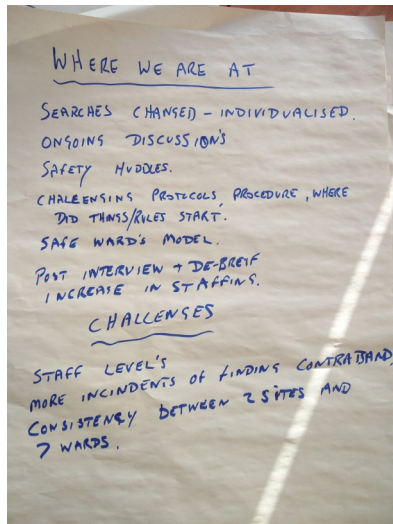 WHERE WE ARE AT
SEARCHES CHANGED - INDIVIDUALISED.
ONGOING DISCUSSION'S
SAFETY HUDDLES.
CHALEENGING PROTOCOLS, PROCEDURE, WHERE
DID THINGS/RULES START.
SAFE WARD'S MODEL.
POST INTERVIEW + DE-BREIF
INCREASE IN STAFFING.
CHALLENGES
STAFF LEVEL'S
MORE INCINDENTS OF FINDING CONTRABAND,
CONSISTENCY BETWEEN 2 SITES AND
7 WARDS.